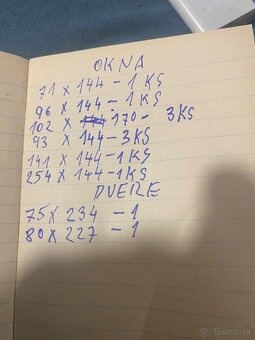 OKNA
71 x 144 - 1 KS
96 x 144 - 1 KS
102 x 144 170 - 3KS
93 x 144 - 3KS
141 x 144 - 1KS
254 x 144 - 1KS
DVERE
75 x 234 - 1
80 x 227 - 1
Bazos.sk